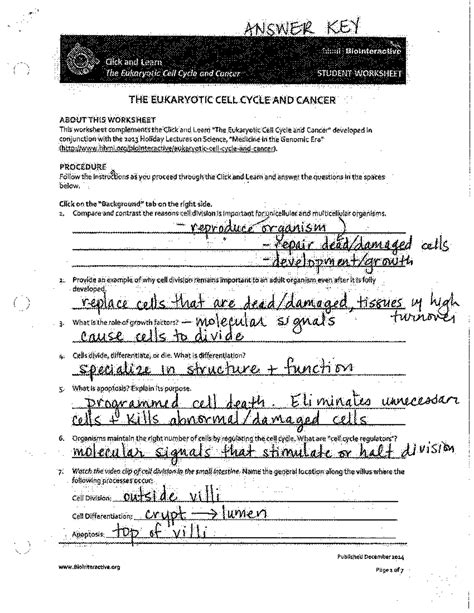 ANSWER KEY
hhmi BioInteractive
Click and Learn
The Eukaryotic Cell Cycle and Cancer
STUDENT WORKSHEET
THE EUKARYOTIC CELL CYCLE AND CANCER
ABOUT THIS WORKSHEET
This worksheet complements the Click and Learn "The Eukaryotic Cell Cycle and Cancer" developed in
conjunction with the 2013 Holiday Lectures on Science, "Medicine in the Genomic Era"
(http://www.hhmi.org/biointeractive/eukaryotic-cell-cycle-and-cancer).
PROCEDURE
Follow the instructions as you proceed through the Click and Learn and answer the questions in the spaces
below.
Click on the "Background" tab on the right side.
1. Compare and contrast the reasons cell division is important for unicellular and multicellular organisms.
- reproduce organism
- repair dead/damaged cells
- development/growth
2. Provide an example of why cell division remains important to an adult organism even after it is fully
developed.
replace cells that are dead/damaged, tissues w/ high
turnover
3. What is the role of growth factors? - molecular signals
cause cells to divide
4. Cells divide, differentiate, or die. What is differentiation?
specialize in structure + function
5. What is apoptosis? Explain its purpose.
programmed cell death. Eliminates unnecessary
cells + kills abnormal/damaged cells
6. Organisms maintain the right number of cells by regulating the cell cycle. What are "cell cycle regulators"?
molecular signals that stimulate or halt division
7. Watch the video clip of cell division in the small intestine. Name the general location along the villus where the
following processes occur:
Cell Division: outside villi
Cell Differentiation: crypt → lumen
Apoptosis: top of villi
Published December 2014
www.BioInteractive.org
Page 1 of 7